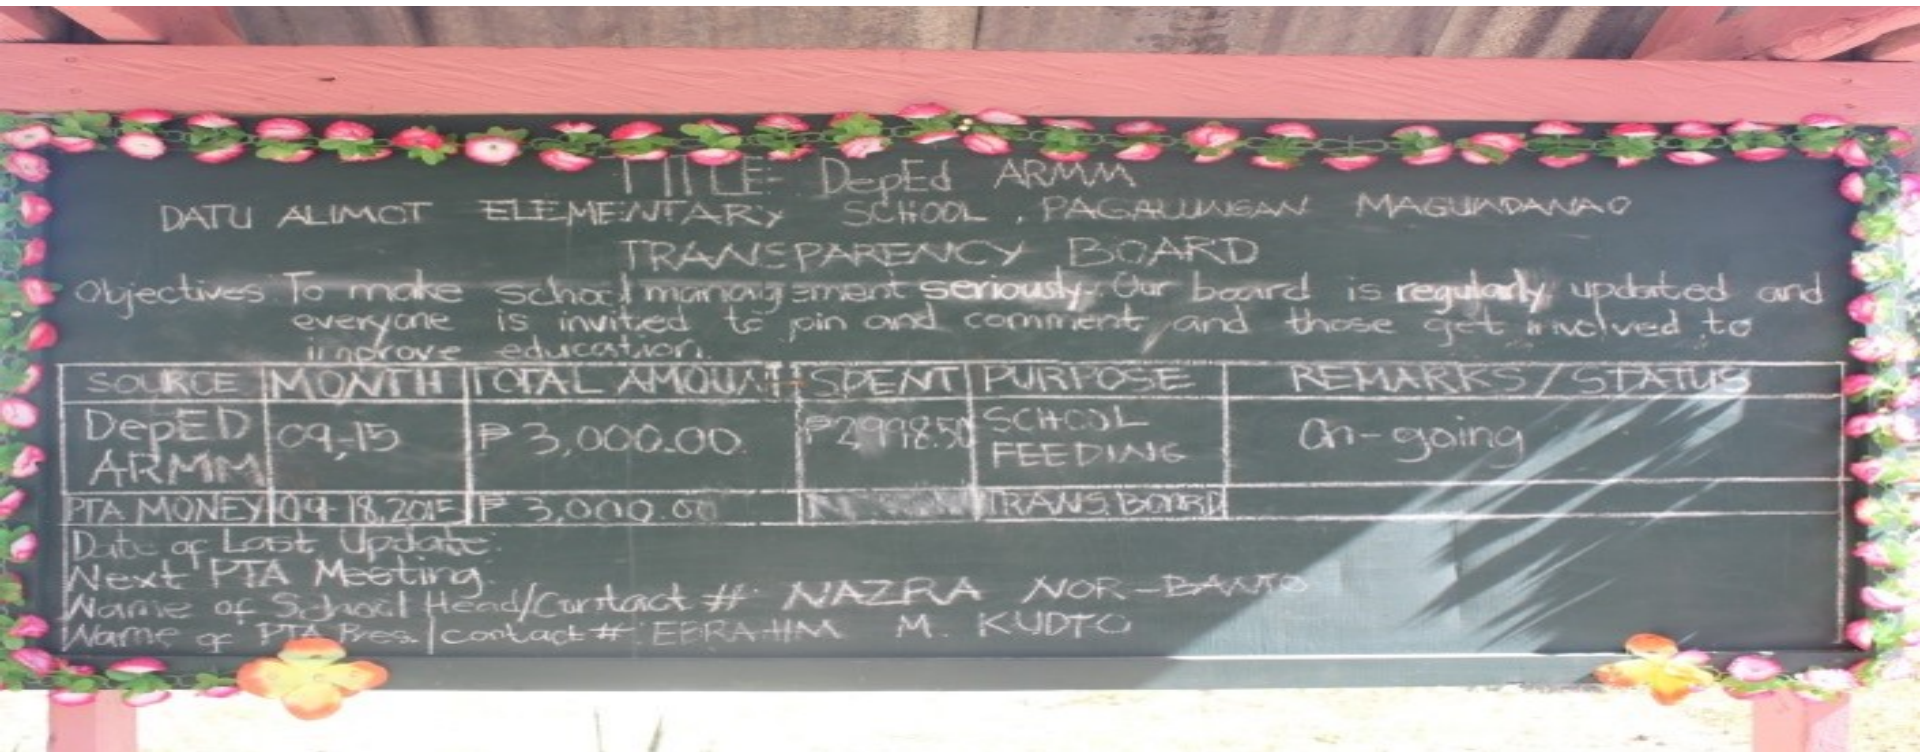 TITLE: DepEd ARMM
DATU ALIMOT ELEMENTARY SCHOOL, PAGALUNGAN MAGUINDANAO
TRANSPARENCY BOARD
Objectives: To make school management seriously. Our board is regularly updated and
everyone is invited to pin and comment, and those get involved to
improve education.
SOURCE MONTH TOTAL AMOUNT SPENT PURPOSE REMARKS/STATUS
DepED ARMM 09,-15 ₱ 3,000.00 ₱2998.50 SCHOOL FEEDING On-going
PTA MONEY 09-18,2015 ₱ 3,000.00 TRANS. BOARD
Date of Last Update:
Next PTA Meeting:
Name of School Head/Contact #: NAZRA NOR-BANTO
Name of PTA Pres. / contact #: EBRAHIM M. KUDTO